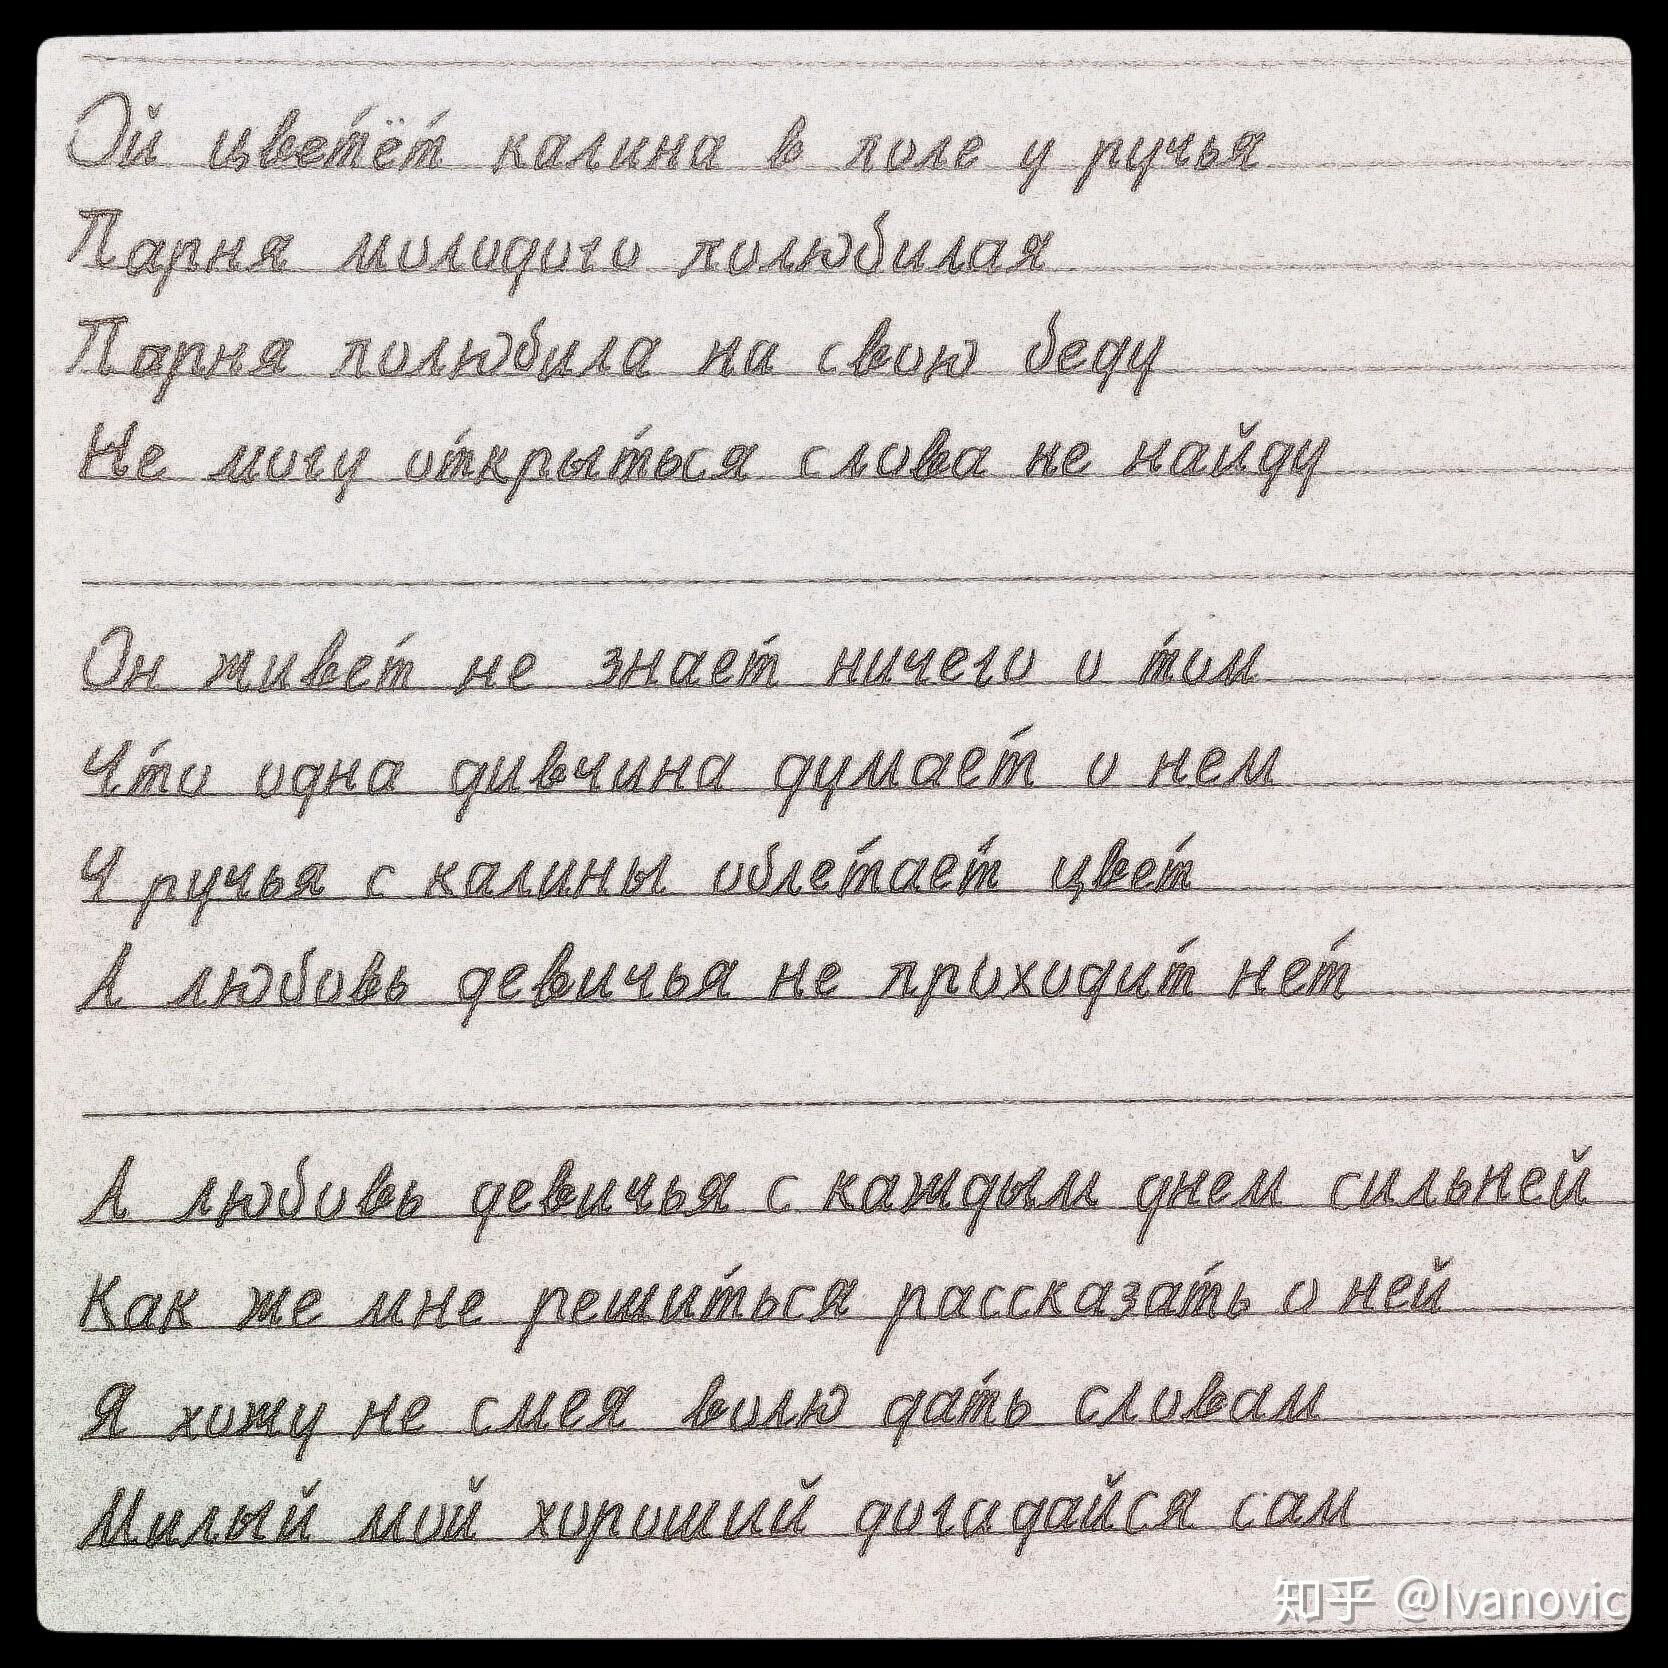 Ой цветёт калина в поле у ручья
Парня молодого полюбилая
Парня полюбила на свою беду
Не могу открыться слова не найду
Он живет не знает ничего о том
Что одна дивчина думает о нем
У ручья с калины облетает цвет
А любовь девичья не приходит нет
А любовь девичья с каждым днем сильней
Как же мне решиться рассказать о ней
Я хожу не смея волю дать словам
Милый мой хороший догадайся сам
知乎 @Ivanovic